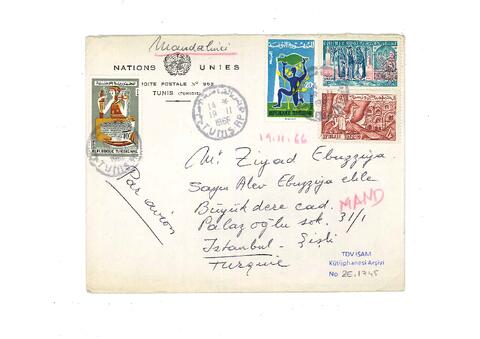 Mandalinci
NATIONS UNIES
BOITE POSTALE N° 863
TUNIS (TUNISIE)
14 *
19 - 11
1966
TUNIS R.P.
REPUBLIQUE TUNISIENNE
19.11.66
Mr Ziyad Ebuzziya
Sayın Alev Ebuzziya eliyle
Büyükdere cad.
MAND
Palazoğlu sok. 31/1
Istanbul - Şişli
Turquie
Par avion
TDV ISAM
Kütüphanesi Arşivi
No 2E.1745